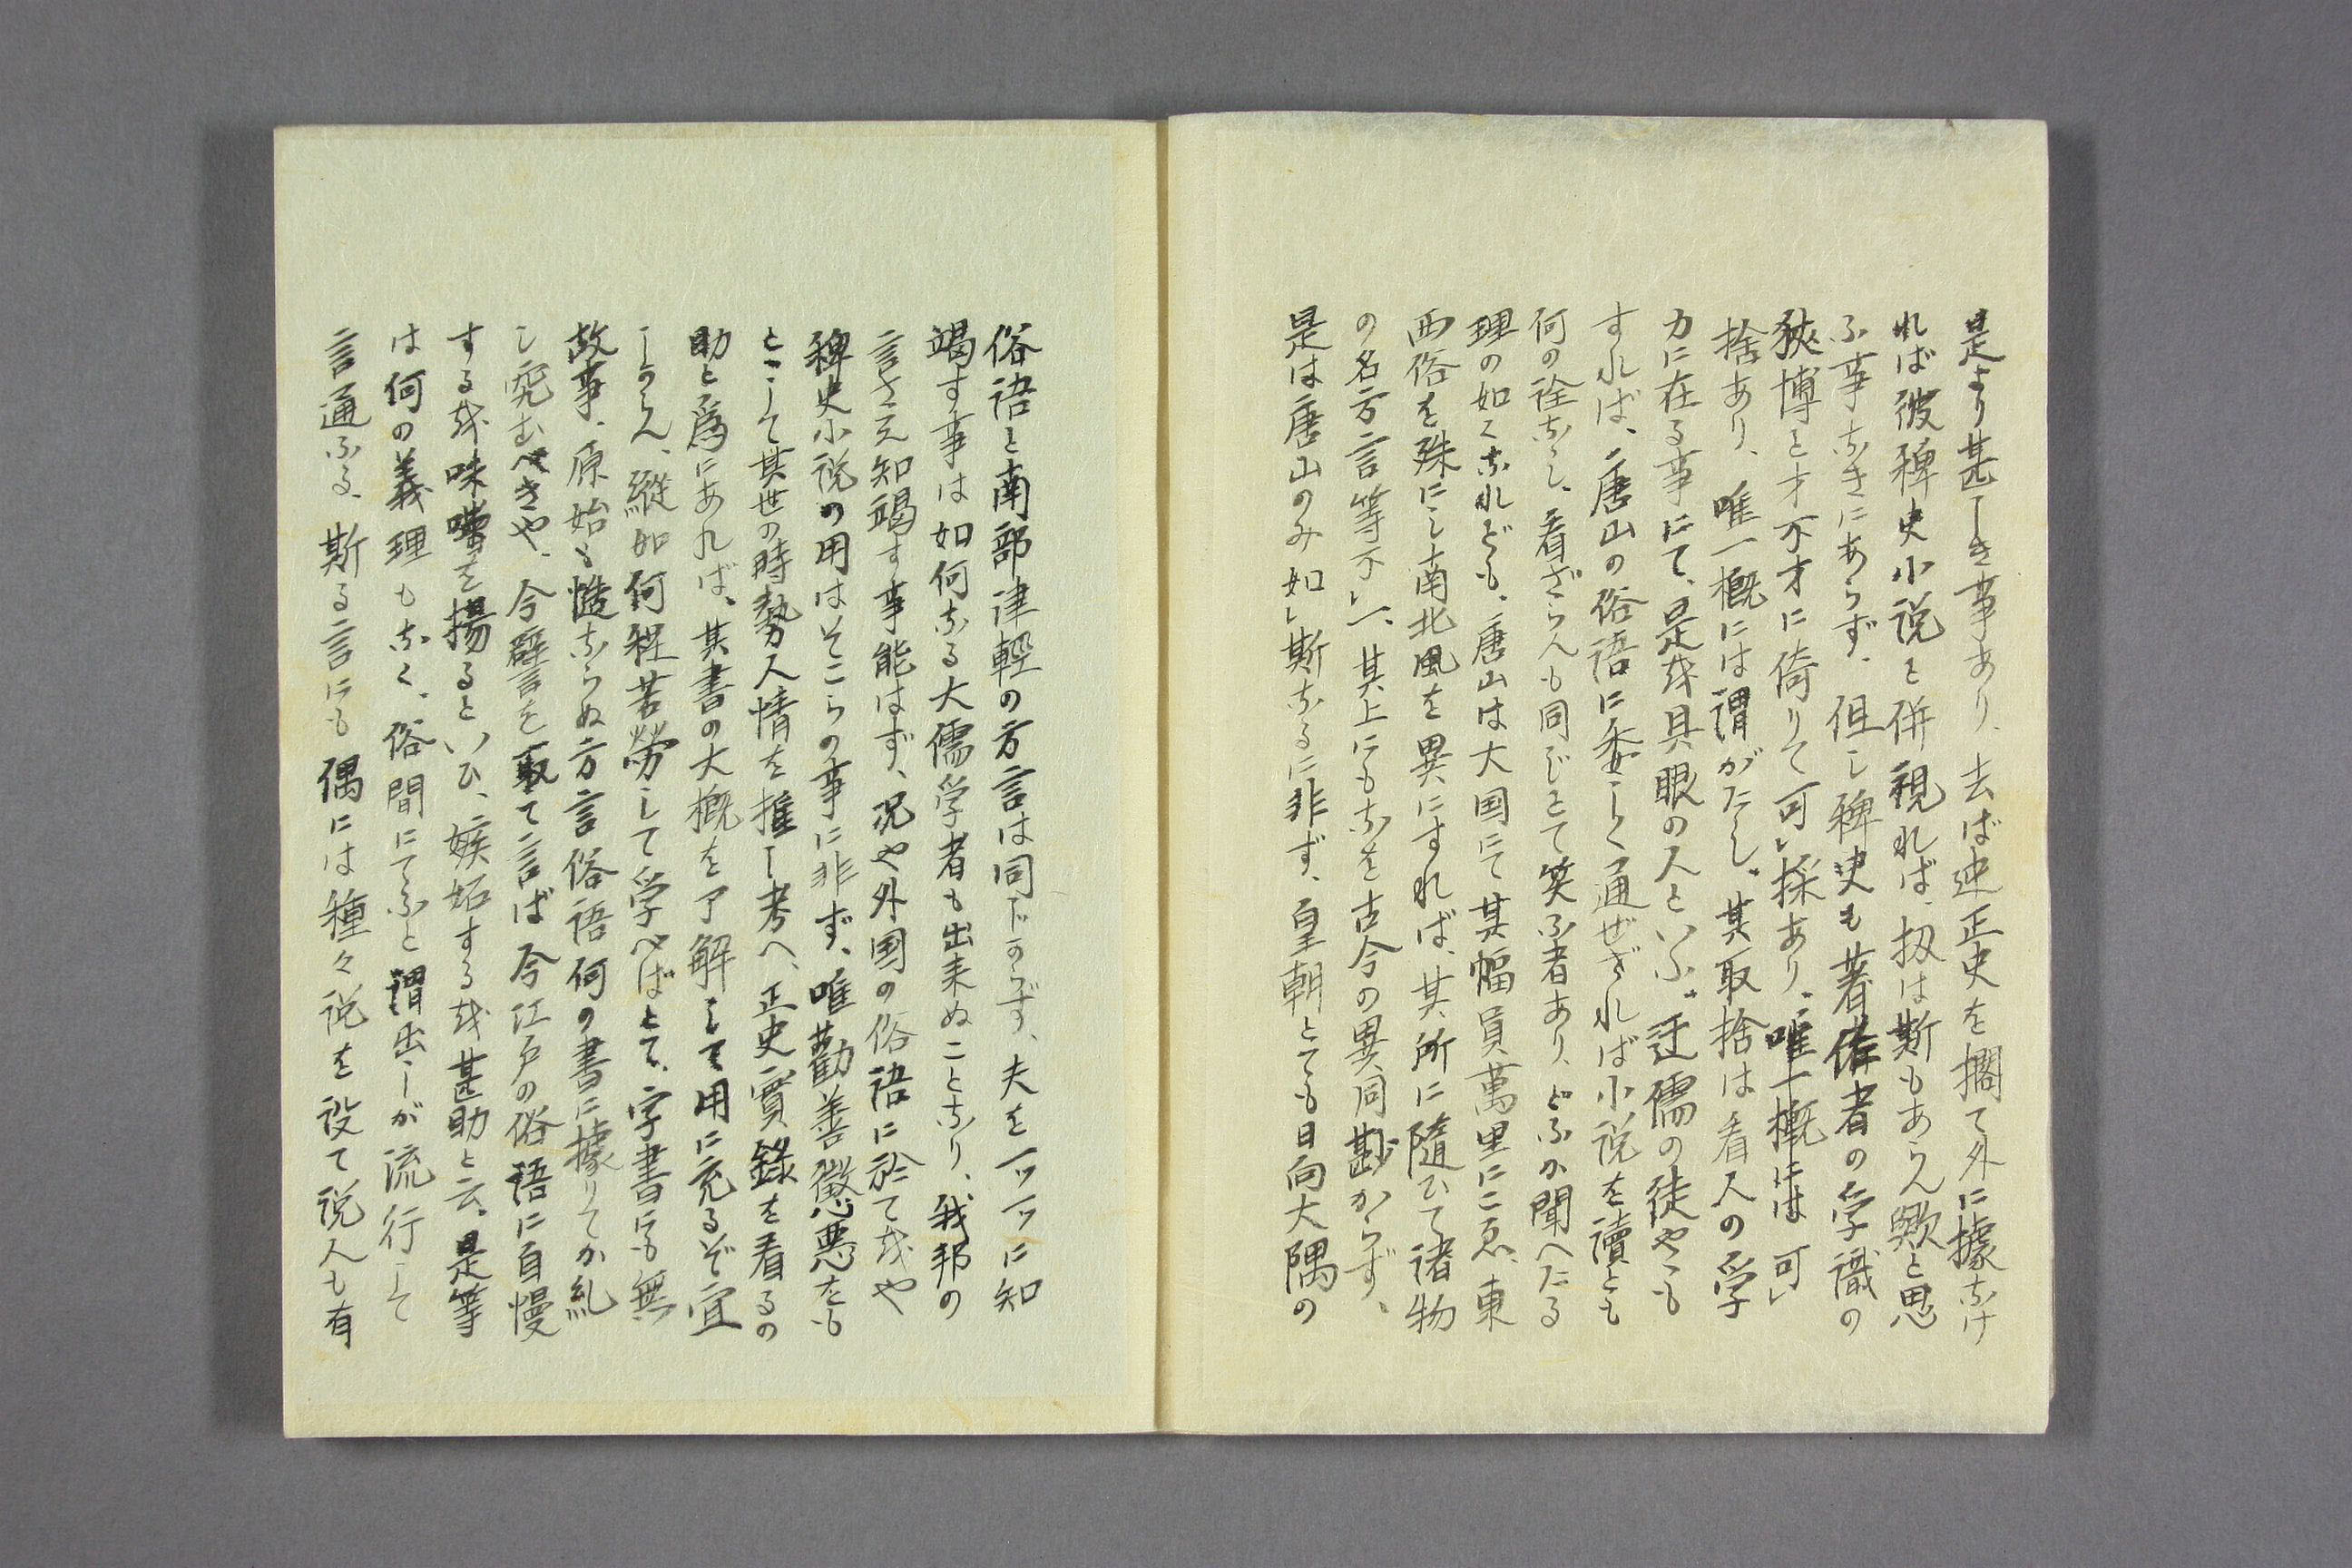 是より甚しき事あり、去ば迚正史を擱て外に據なけ
れば彼稗史小説を併視れば、扨は斯もあらん歟と思
ふ事なきにあらず、但し稗史も著作者の学識の
狭博と才不才に倚りて可レ採あり、唯一概には可レ
捨あり、唯一概には謂がたし、其取捨は看人の学
力に在る事にて、是を具眼の人といふ、迂儒の徒やゝも
すれば、唐山の俗語に委しく通ぜざれば小説を讀とも
何の詮なし、看ざらんも同じとて笑ふ者あり、どふか聞へたる
理の如くなれども、唐山は大国にて其幅員萬里にこゑ、東
西俗を殊にし南北風を異にすれば、其所に隨ひて諸物
の名方言等不レ一、其上にもなを古今の異同尠からず、
是は唐山のみ如レ斯なるに非ず、皇朝とても日向大隅の
俗語と南部津輕の方言は同じからず、夫を一ツ一ツに知
竭す事は如何なる大儒学者も出来ぬことなり、我邦の
言さえ知竭す事能はず、况や外国の俗語に於てをや
稗史小説の用はそこらの事に非ず、唯勸善懲悪をも
とゝして其世の時勢人情を推し考へ、正史實錄を看るの
助と爲にあれば、其書の大概を了解して用に充るぞ宜
しからん、縱如何程苦勞して学べばとて、字書にも無
故事、原始も慥ならぬ方言俗語何の書に據りてか糺
し究むべきや、今譬を取て言ば今江戸の俗語に自慢
するを味噌を揚るといひ、嫉妬するを甚助と云、是等
は何の義理もなく、俗間にてふと謂出しが流行して
言通ふる、斯る言にも偶には種々説を設て説人も有